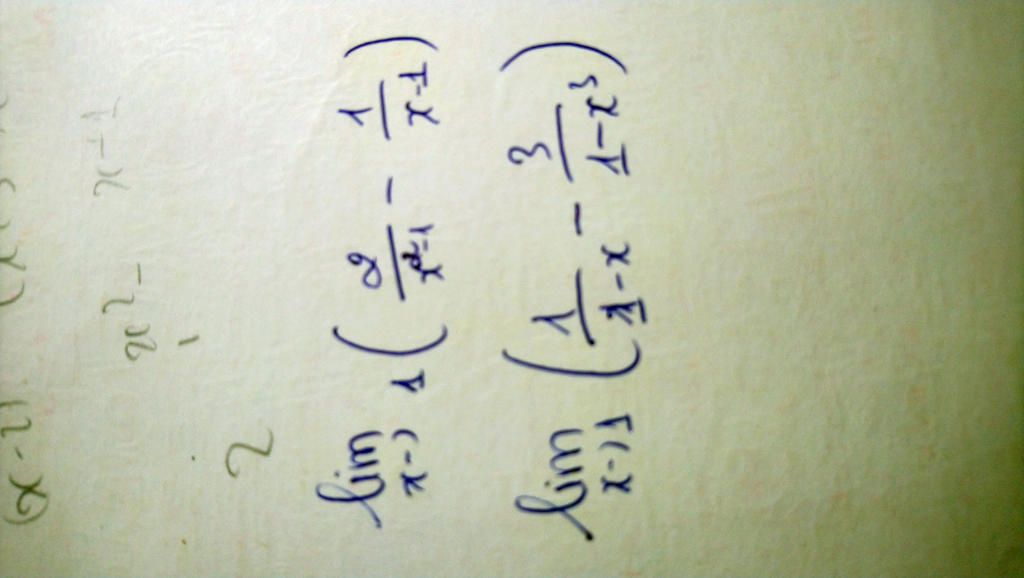 x² - x-1
2
lim x->1 (2/(x²-1) - 1/(x-1))
lim x->1 (1/(1-x) - 3/(1-x³))